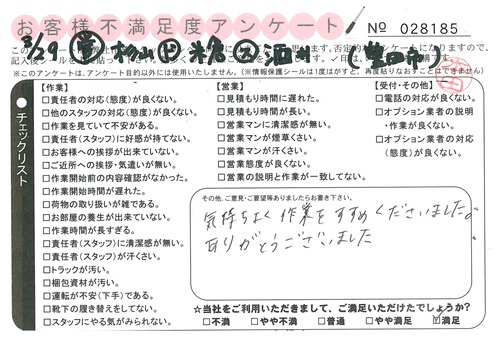 お客様不満足度アンケート
№ 028185
※このアンケートは、アンケート目的以外には使用いたしません。(※情報保護シールは1度はがすと、再度貼りなおすことはできません)
チェックリスト
【作業】
□責任者の対応(態度)が良くない。
□他のスタッフの対応(態度)が良くない。
□作業を見ていて不安がある。
□責任者(スタッフ)に好感が持てない。
□お客様への挨拶が出来ていない。
□ご近所への挨拶・気遣いが無い。
□作業開始前の内容確認がなかった。
□作業開始時間が遅れた。
□荷物の取り扱いが雑である。
□お部屋の養生が出来ていない。
□作業時間が長すぎる。
□責任者(スタッフ)に清潔感が無い。
□責任者(スタッフ)が汗くさい。
□トラックが汚い。
□梱包資材が汚い。
□運転が不安(下手)である。
□靴下の履き替えをしてない。
□スタッフにやる気がみられない。
【営業】
□見積もり時間に遅れた。
□見積もり時間が長い。
□営業マンに清潔感が無い。
□営業マンが煙草くさい。
□営業マンが汗くさい。
□営業態度が良くない。
□営業の説明と作業が一致してない。
【受付・その他】
□電話の対応が良くない。
□オプション業者の説明
・作業が良くない。
□オプション業者の対応
(態度)が良くない。
その他、ご意見・ご要望等ありましたらお書き下さい。
気持ちよく作業をすすめくださいました。
ありがとうございました
☆当社をご利用いただきまして、ご満足いただけたでしょうか?
□不満 □やや不満 □普通 □やや満足 ☑満足